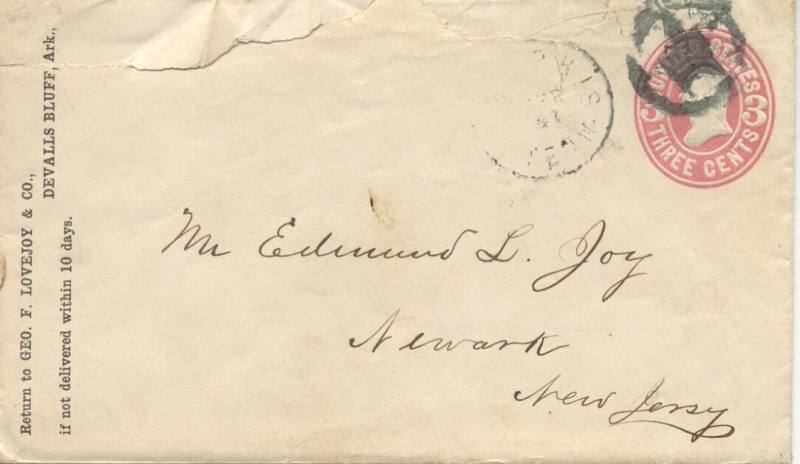 Return to GEO. F. LOVEJOY & CO.,
DEVALLS BLUFF, Ark.,
if not delivered within 10 days.
UNITED STATES
3 3
THREE CENTS
Mr Edmund L. Joy
Newark
New Jersy